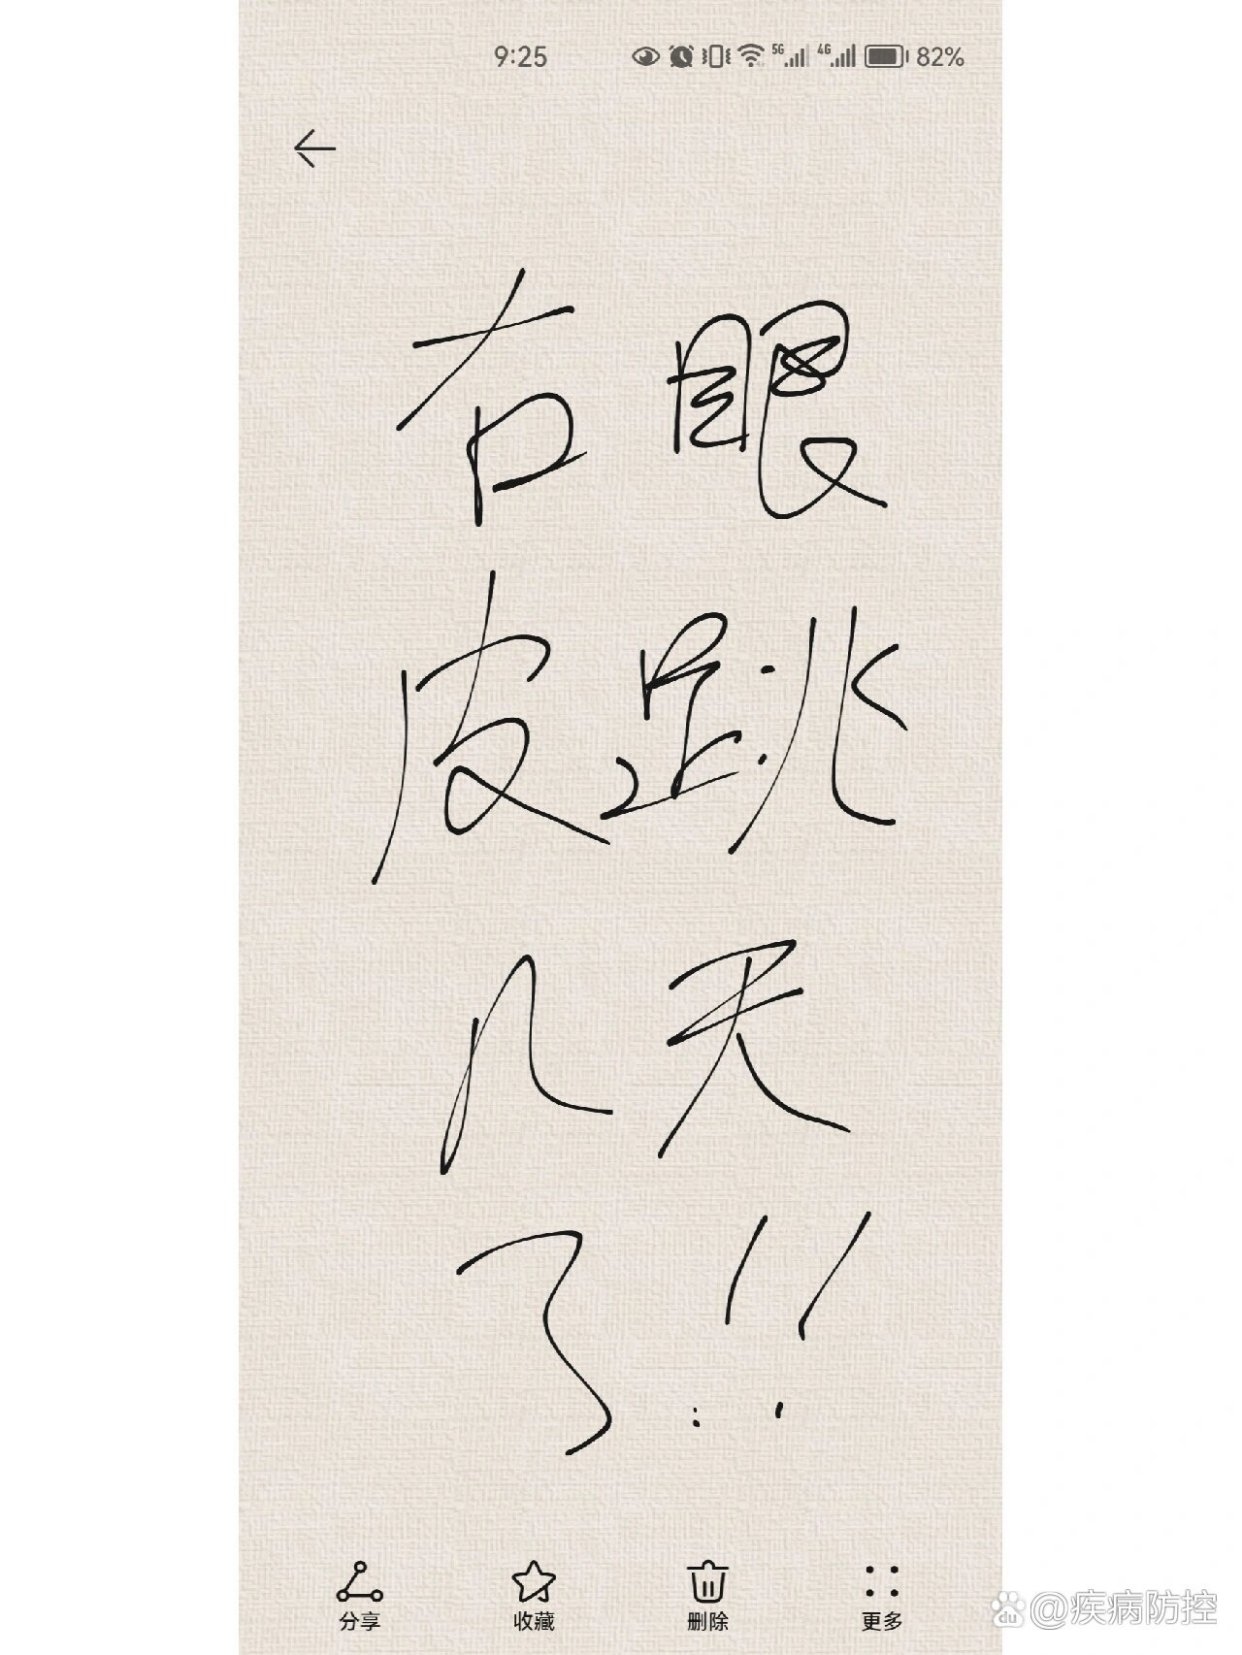 9:25 5G 4G 82%
右眼
皮跳
几天
了!!
分享 收藏 删除 更多
du @疾病防控